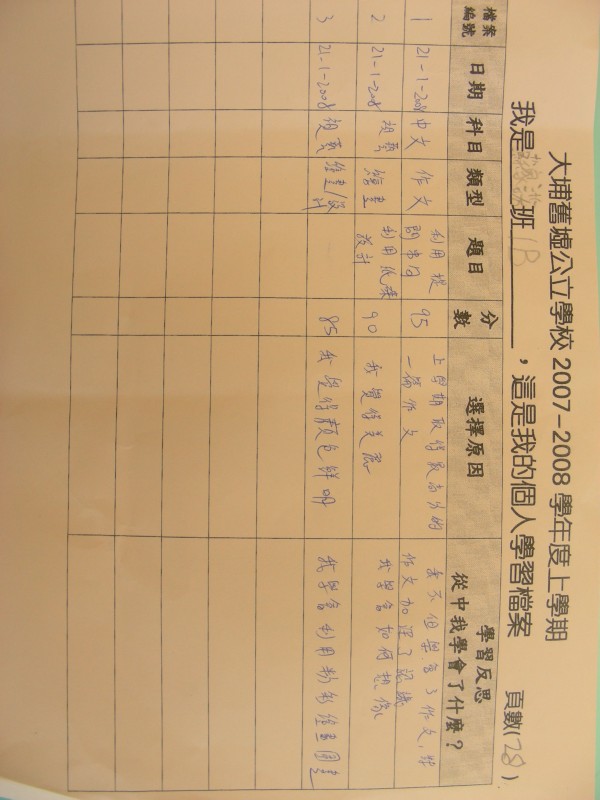 大埔舊墟公立學校 2007-2008 學年度上學期
我是 班 1B ，這是我的個人學習檔案 頁數(28)
檔案編號 日期 科目 類型 題目 分數 選擇原因 學習反思 從中我學會了什麼？
1 21-1-2008 中文 作文 利用 的 95 上學期取得最高分的一篇作文 我不但學會了作文，對作文加深了認識
2 21-1-2008 視藝 繪畫 利用紙 設計 90 我覺得美麗 我學會如何想像
3 21-1-2008 視藝 繪畫/設計 85 我覺得顏色鮮明 我學會利用粉彩繪畫圖畫